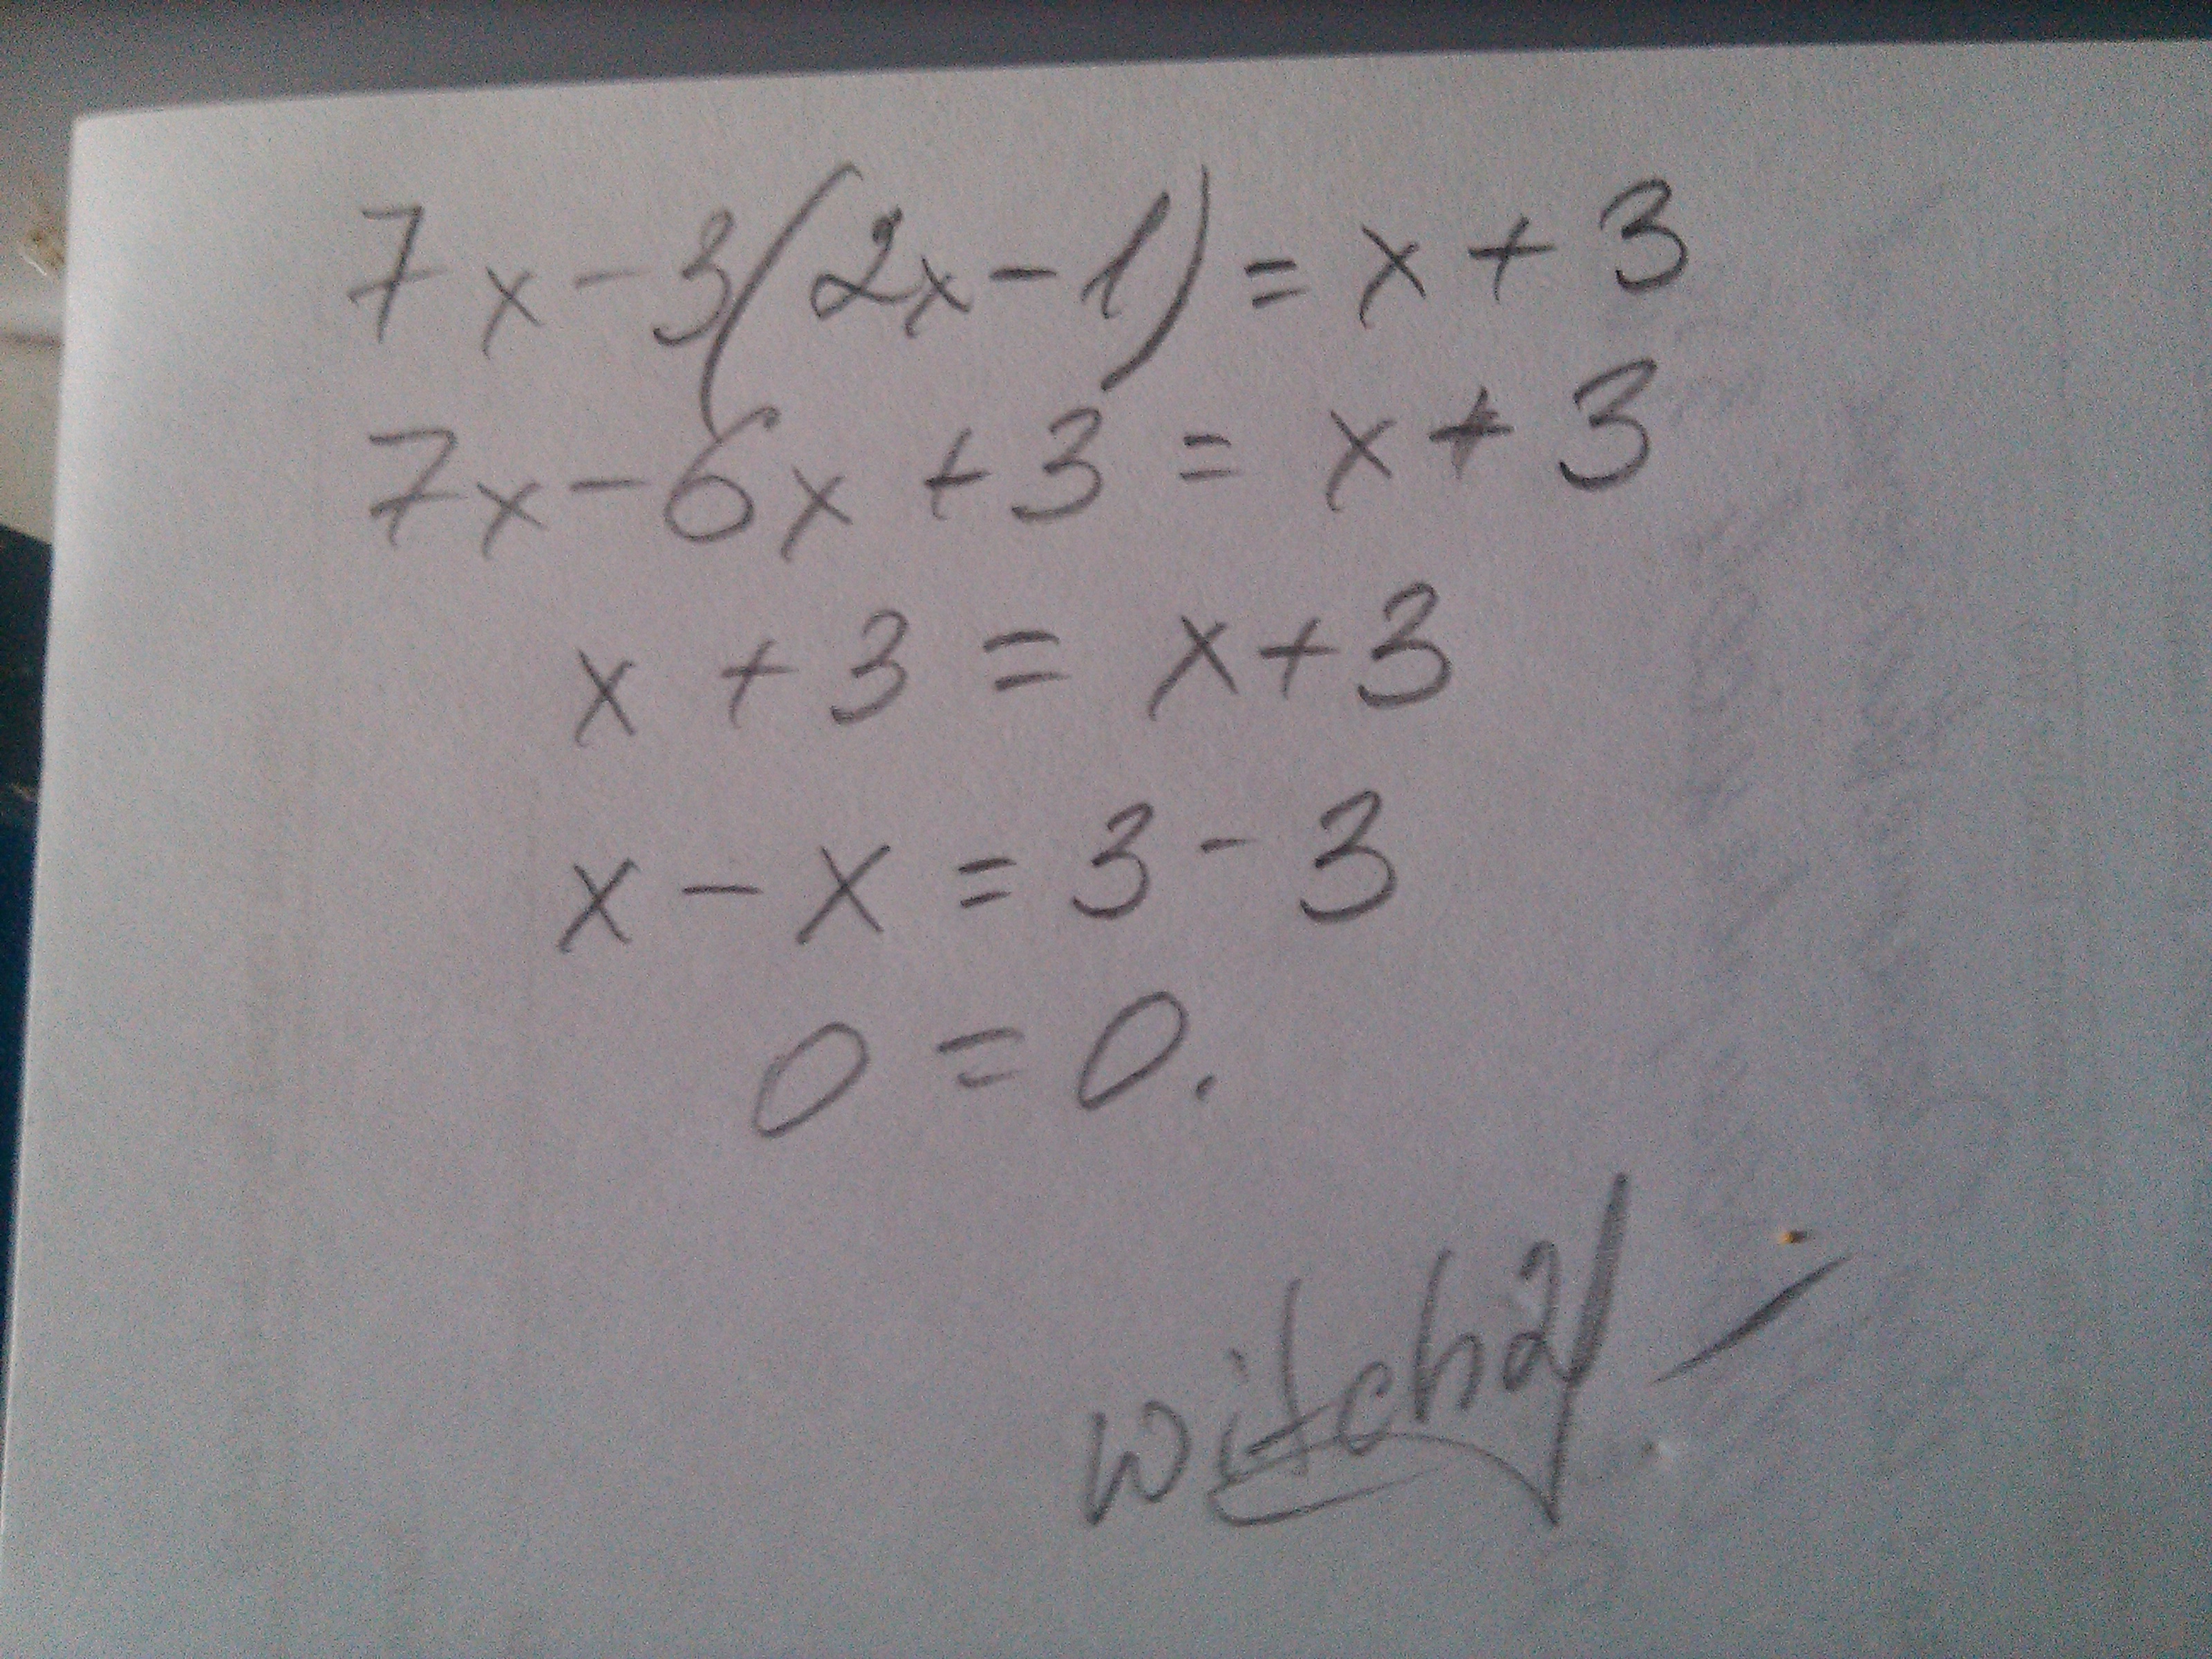 7x-3(2x-1)=x+3
7x-6x+3=x+3
x+3=x+3
x-x=3-3
0=0.
witch21